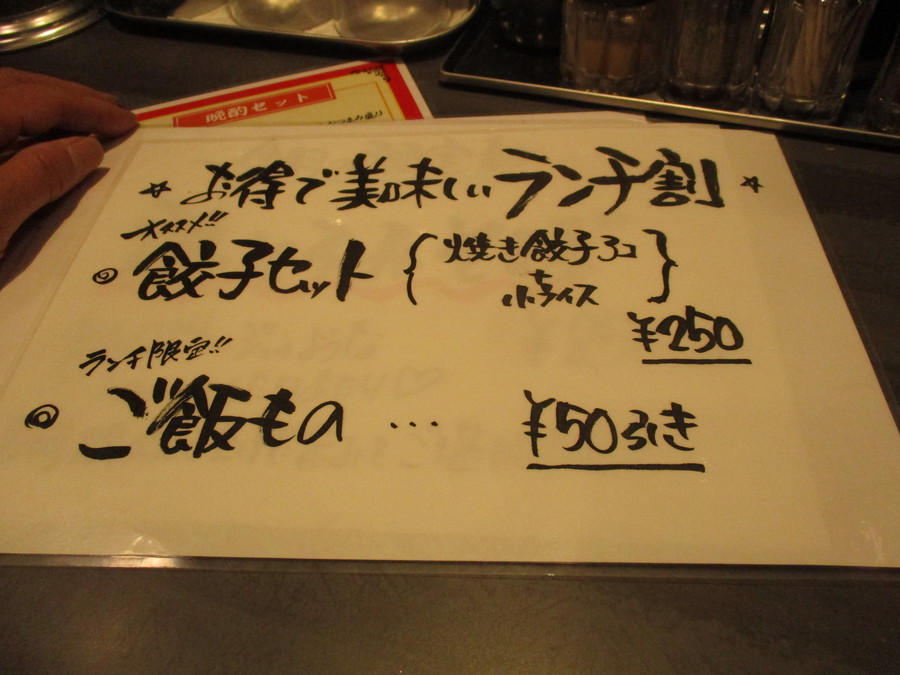 晩酌セット
☆ お得で美味しいランチ割 ☆
オススメ!!
◎ 餃子セット { 焼き餃子3コ
+
小ライス }
¥250
ランチ限定!!
◎ ご飯もの … ¥50引き